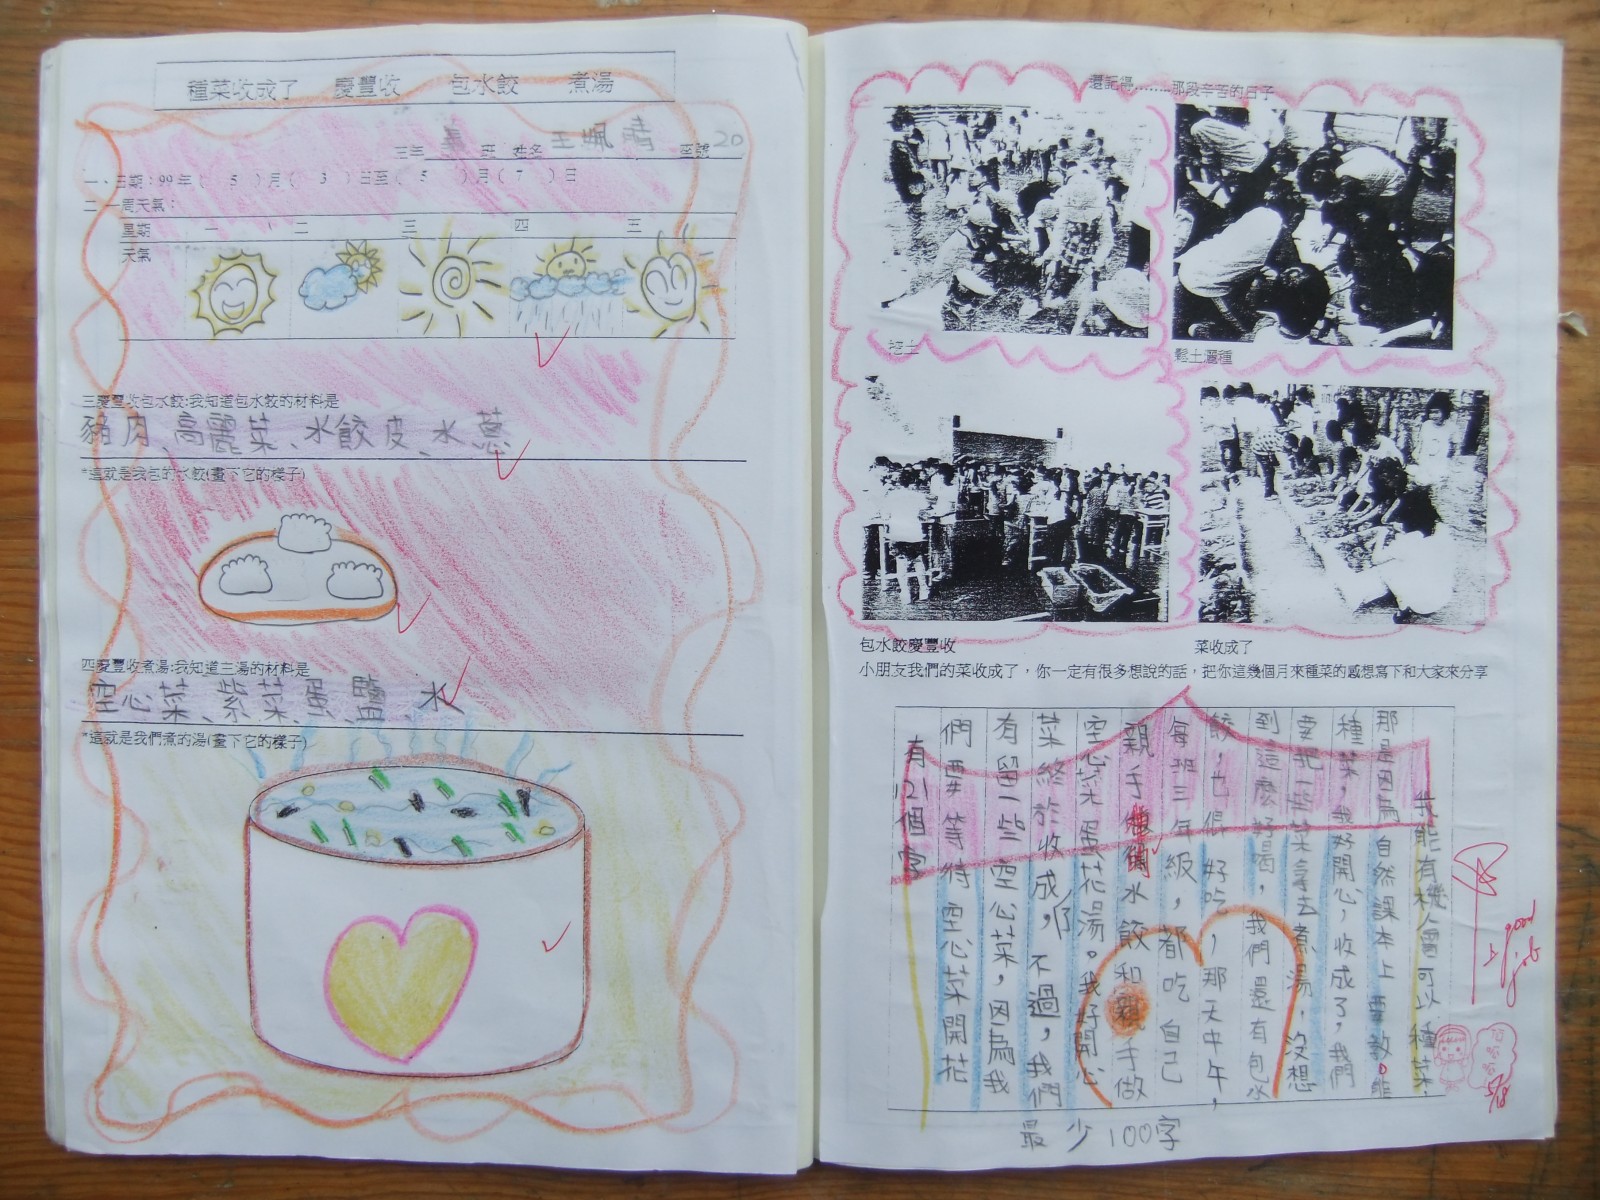 種菜收成了 慶豐收 包水餃 煮湯
三年 班 姓名 王珮晴 座號 20
一、日期:99年( 5 )月( 3 )日至( 5 )月( 7 )日
二 一周天氣:
星期 一 二 三 四 五
天氣
三慶豐收包水餃:我知道包水餃的材料是
豬肉、高麗菜、水餃皮、水蔥
*這就是我包的水餃(畫下它的樣子)
四慶豐收煮湯:我知道三湯的材料是
空心菜、紫菜、蛋、鹽、水
*這就是我們煮的湯(畫下它的樣子)
還記得........那段辛苦的日子
挖土
鬆土灑種
包水餃慶豐收
菜收成了
小朋友我們的菜收成了,你一定有很多想說的話,把你這幾個月來種菜的感想寫下和大家來分享
我能有機會可以種菜,
那是因為自然課本上要教。
種菜,我好開心,收成了,我們
要把一些菜拿去煮湯,沒想
到這麼好喝,我們還有包水
餃,也很好吃,那天中午,
每班三年級,都吃自己
親手做的水餃和親手做
空心菜蛋花湯。我好開心
菜終於收成啊,不過,我們
有留一些空心菜,因為我
們要等待空心菜開花
有121個字
最少100字
good job
5/18